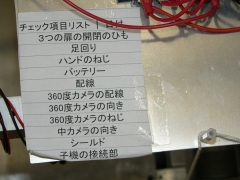 チェック項目リスト
3つの扉の開閉のひも
足回り
ハンドのねじ
バッテリー
配線
360度カメラの配線
360度カメラの向き
360度カメラのねじ
中カメラの向き
シールド
子機の接続部